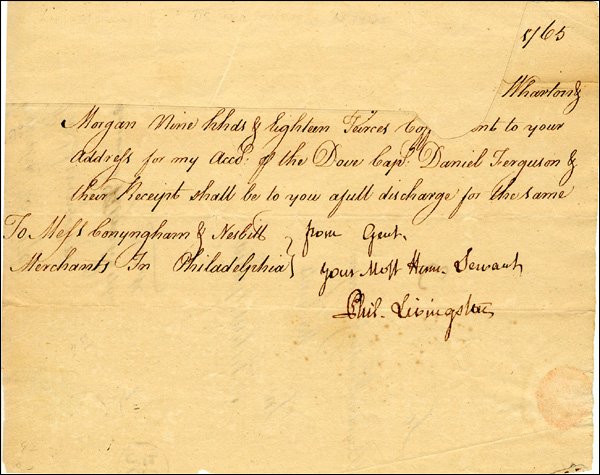 1765
Wharton &
Morgan Nine hhds & Eighteen Teirces Coff nt to your
Address for my Acco: of the Dove Cap: Daniel Ferguson &
their Receipt shall be to you afull discharge for the same
To Mess Conyngham & Nesbitt } from Gent.
Merchants In Philadelphia } your Most Hum. Servant
Phil. Livingston